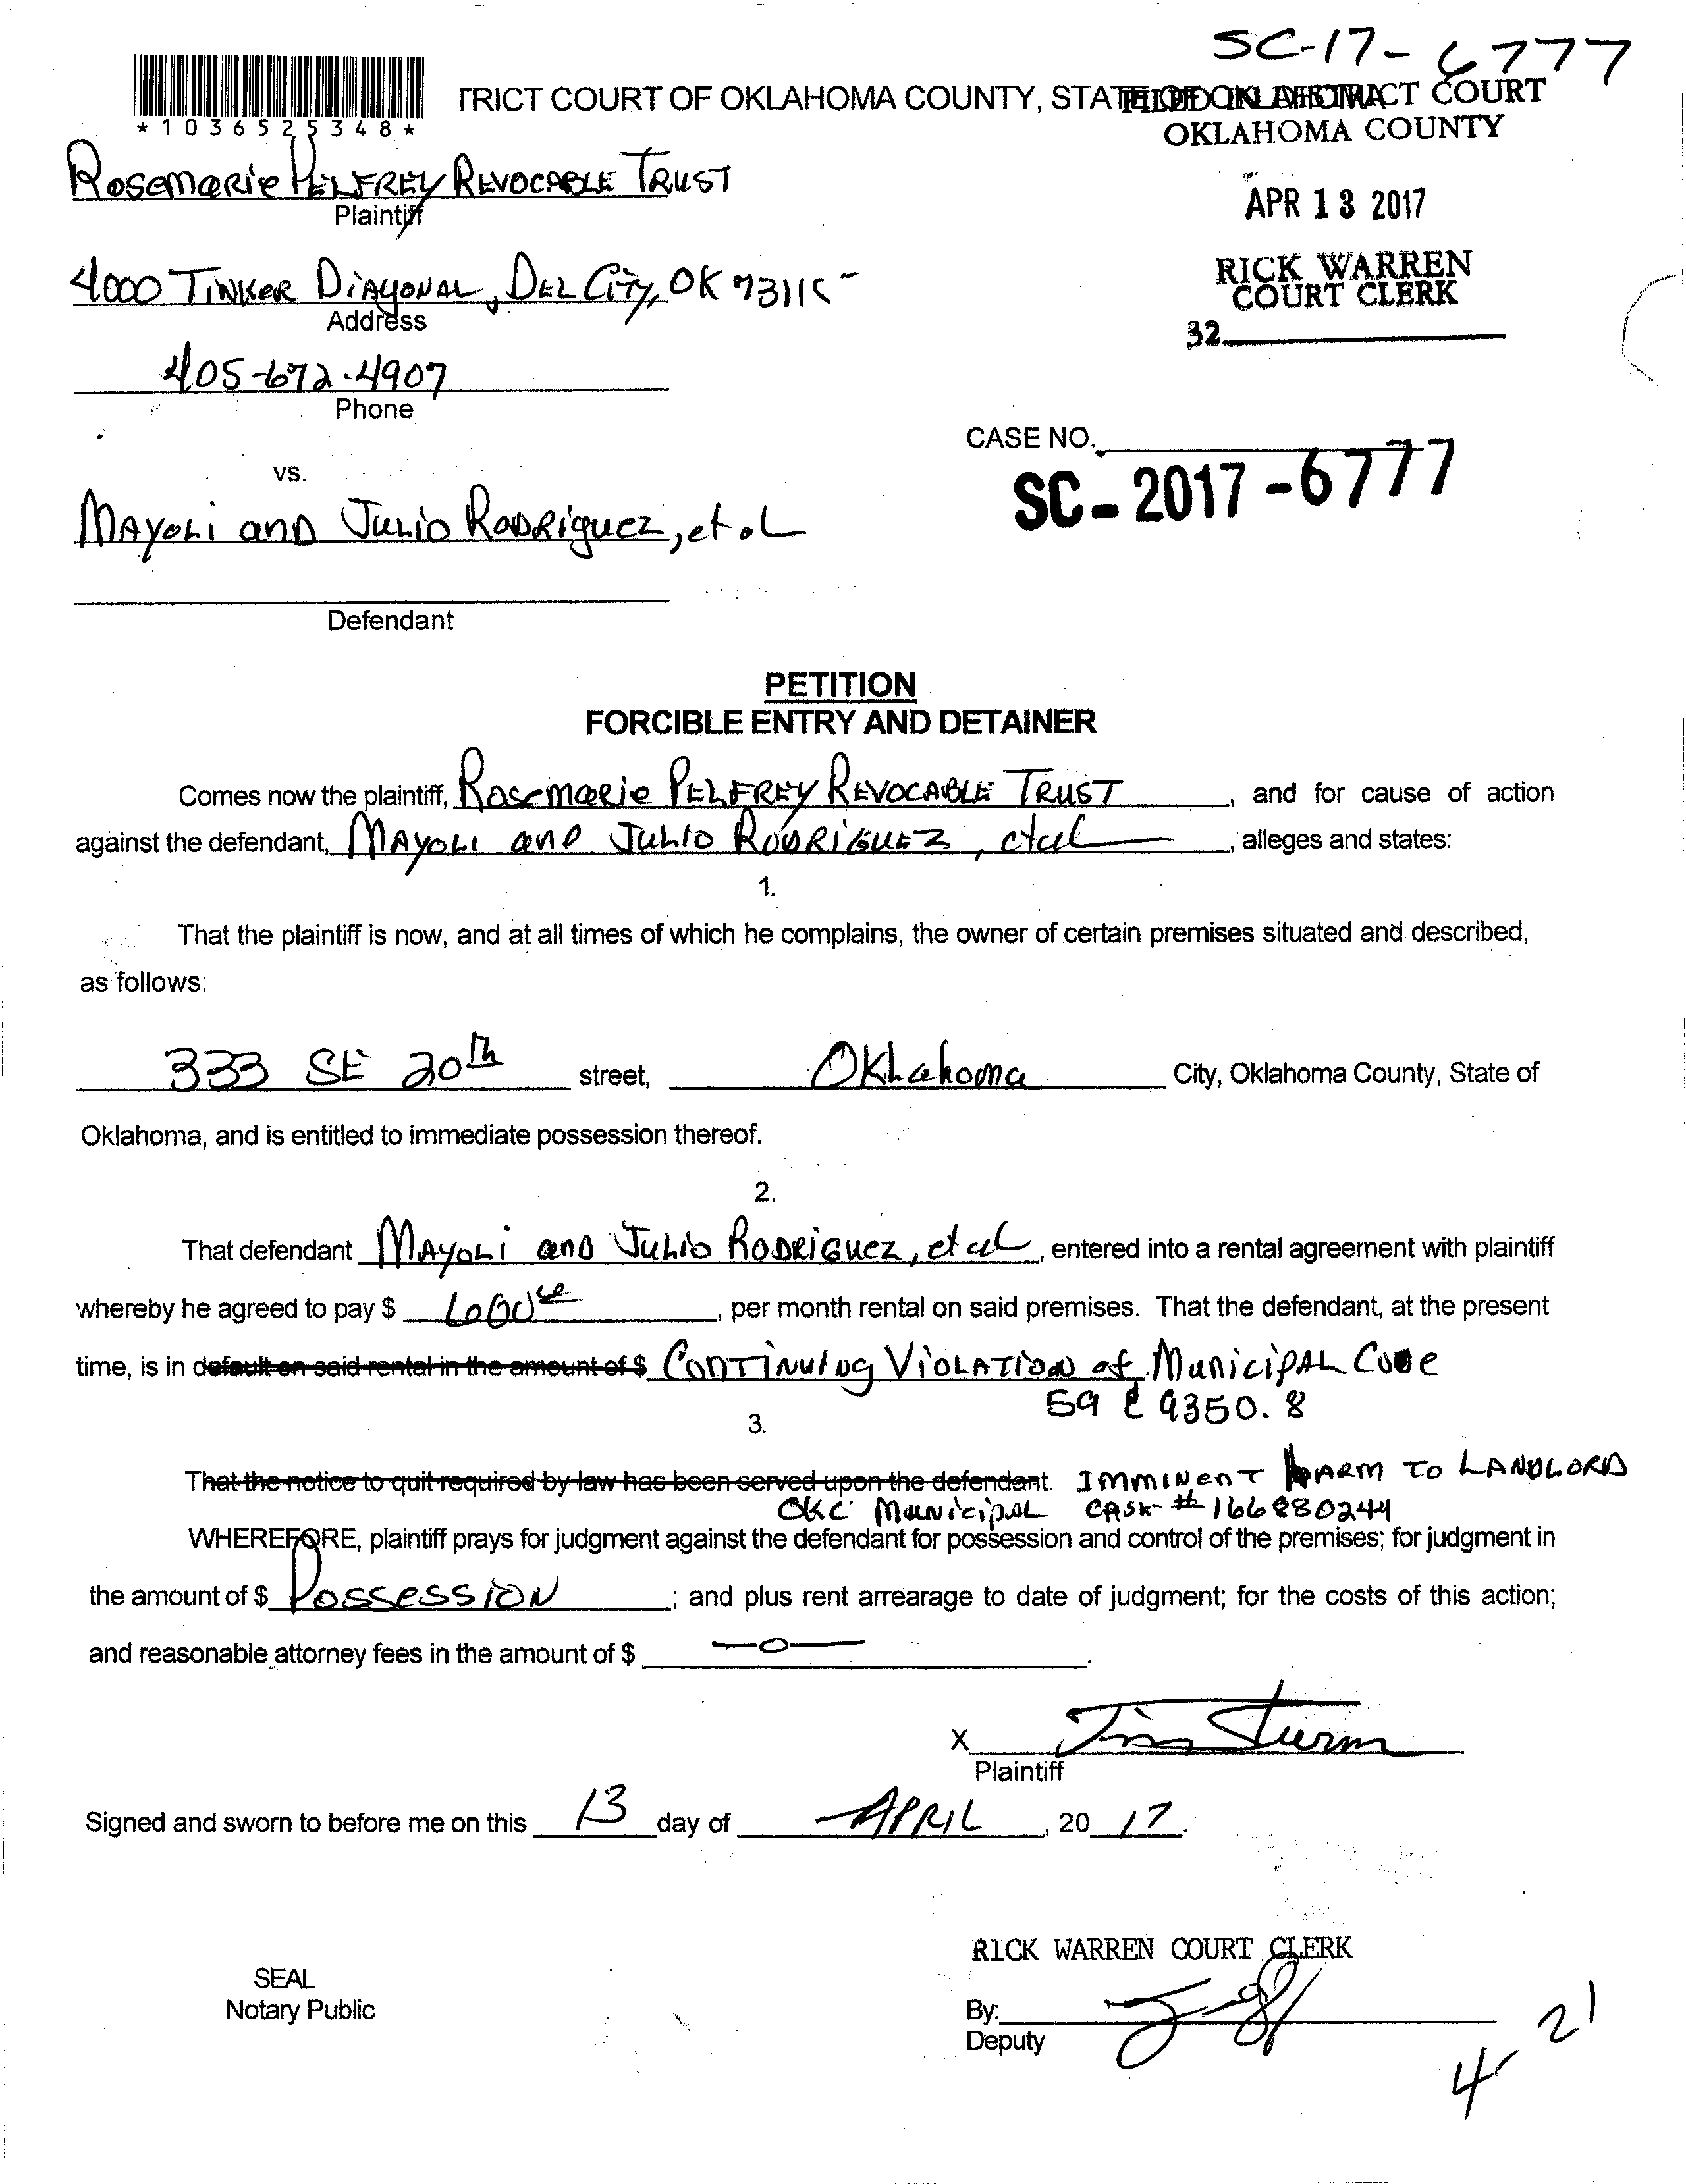 SC-17-6777
TRICT COURT OF OKLAHOMA COUNTY, STATE OF OKLAHOMA
FILED IN DISTRICT COURT
OKLAHOMA COUNTY
*1036525348*
Rosemarie Pelfrey Revocable Trust
Plaintiff
APR 13 2017
4000 Tinker Diagonal, Del City, OK 73115
Address
RICK WARREN
COURT CLERK
32
405-672-4907
Phone
CASE NO.
SC-2017-6777
vs.
Mayoli and Julio Rodriguez, et al
Defendant
PETITION
FORCIBLE ENTRY AND DETAINER
Comes now the plaintiff, Rosemarie Pelfrey Revocable Trust, and for cause of action
against the defendant, Mayoli and Julio Rodriguez, et al, alleges and states:
1.
That the plaintiff is now, and at all times of which he complains, the owner of certain premises situated and described,
as follows:
333 SE 20th street, Oklahoma City, Oklahoma County, State of
Oklahoma, and is entitled to immediate possession thereof.
2.
That defendant Mayoli and Julio Rodriguez, et al, entered into a rental agreement with plaintiff
whereby he agreed to pay $, per month rental on said premises. That the defendant, at the present
time, is in default on said rental in the amount of $ Continuing Violation of Municipal Code
59 & 9350.8
3.
That the notice to quit required by law has been served upon the defendant. Imminent Harm to Landlord
OKC Municipal Case # 166880244
WHEREFORE, plaintiff prays for judgment against the defendant for possession and control of the premises; for judgment in
the amount of $ Possession; and plus rent arrearage to date of judgment; for the costs of this action;
and reasonable attorney fees in the amount of $ —0—.
X Tim Sturm
Plaintiff
Signed and sworn to before me on this 13 day of APRIL, 20 17.
RICK WARREN COURT CLERK
SEAL
Notary Public
By:
Deputy
4 21